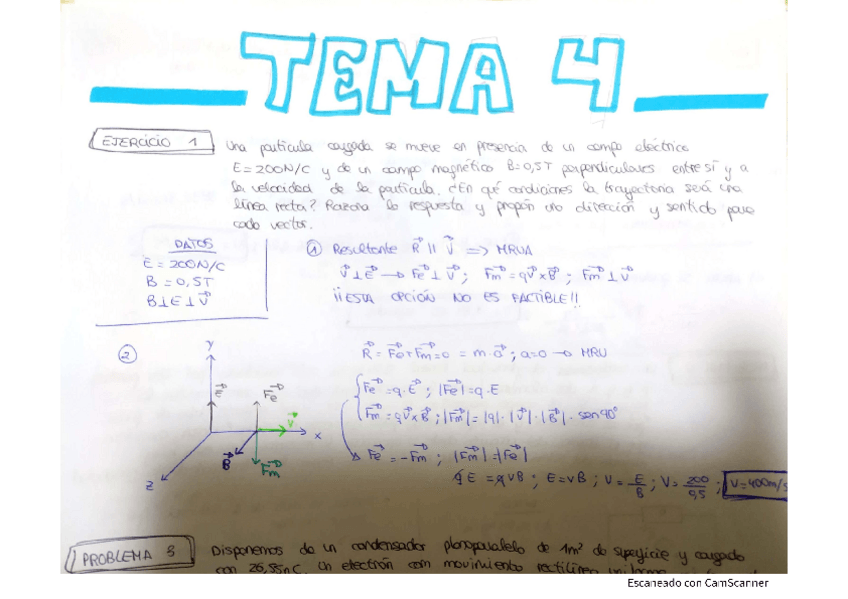 TEMA 4
EJERCICIO 1
Una partícula cargada se mueve en presencia de un campo eléctrico
E=200N/C y de un campo magnético B=0,5T perpendiculares entre sí y a
la velocidad de la partícula. ¿En qué condiciones la trayectoria será una
línea recta? Razona la respuesta y propón una dirección y sentido para
cada vector.
DATOS
E = 200N/C
B = 0,5T
B⊥E⊥V⃗
① Resultante R⃗ || V⃗ => MRUA
V⃗⊥E⃗ → Fe⃗ ⊥ V⃗ ; Fm⃗ = qV⃗xB⃗ ; Fm⃗ ⊥ V⃗
¡¡ESTA OPCIÓN NO ES FACTIBLE!!
②
y
E⃗
Fe⃗
V⃗
x
B⃗
Fm⃗
z
R⃗ = Fe⃗+Fm⃗=0 = m·a⃗ ; a=0 → MRU
Fe⃗ = q·E⃗ ; |Fe⃗|=q·E
Fm⃗ = qV⃗xB⃗ ; |Fm⃗|=|q|·|V⃗|·|B⃗|·sen90º
Fe⃗ = -Fm⃗ ; |Fm⃗|=|Fe⃗|
qE = qvB ; E=vB ; V = E/B ; V= 200/0,5 ; V=400m/s
PROBLEMA 3
Disponemos de un condensador planoparalelo de 1m² de superficie y cargado
con 26,55nC. Un electrón con movimiento rectilíneo uniforme
Escaneado con CamScanner